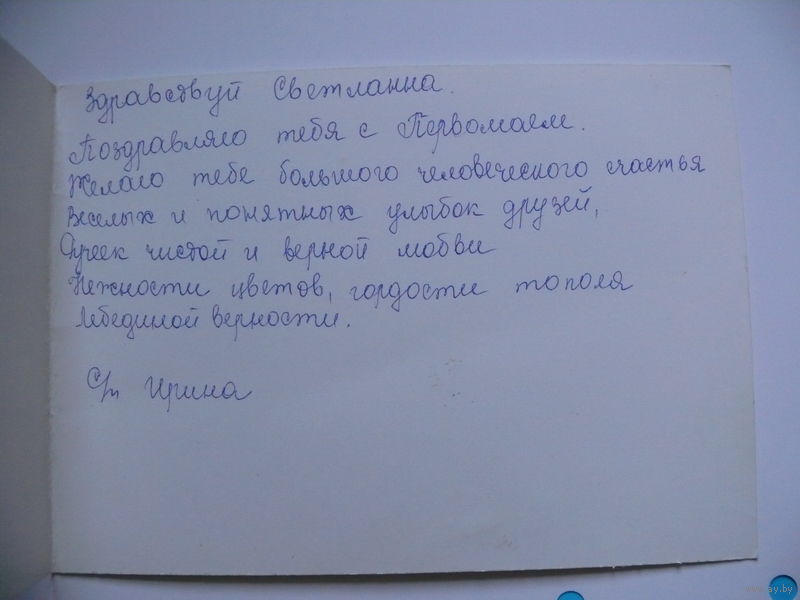 Здравствуй Светланна.
Поздравляю тебя с Первомаем.
Желаю тебе большого человеческого счастья
Веселых и понятных улыбок друзей,
чистой и верной любви
Нежности цветов, гордости тополя
Лебединой верности.
Ирина